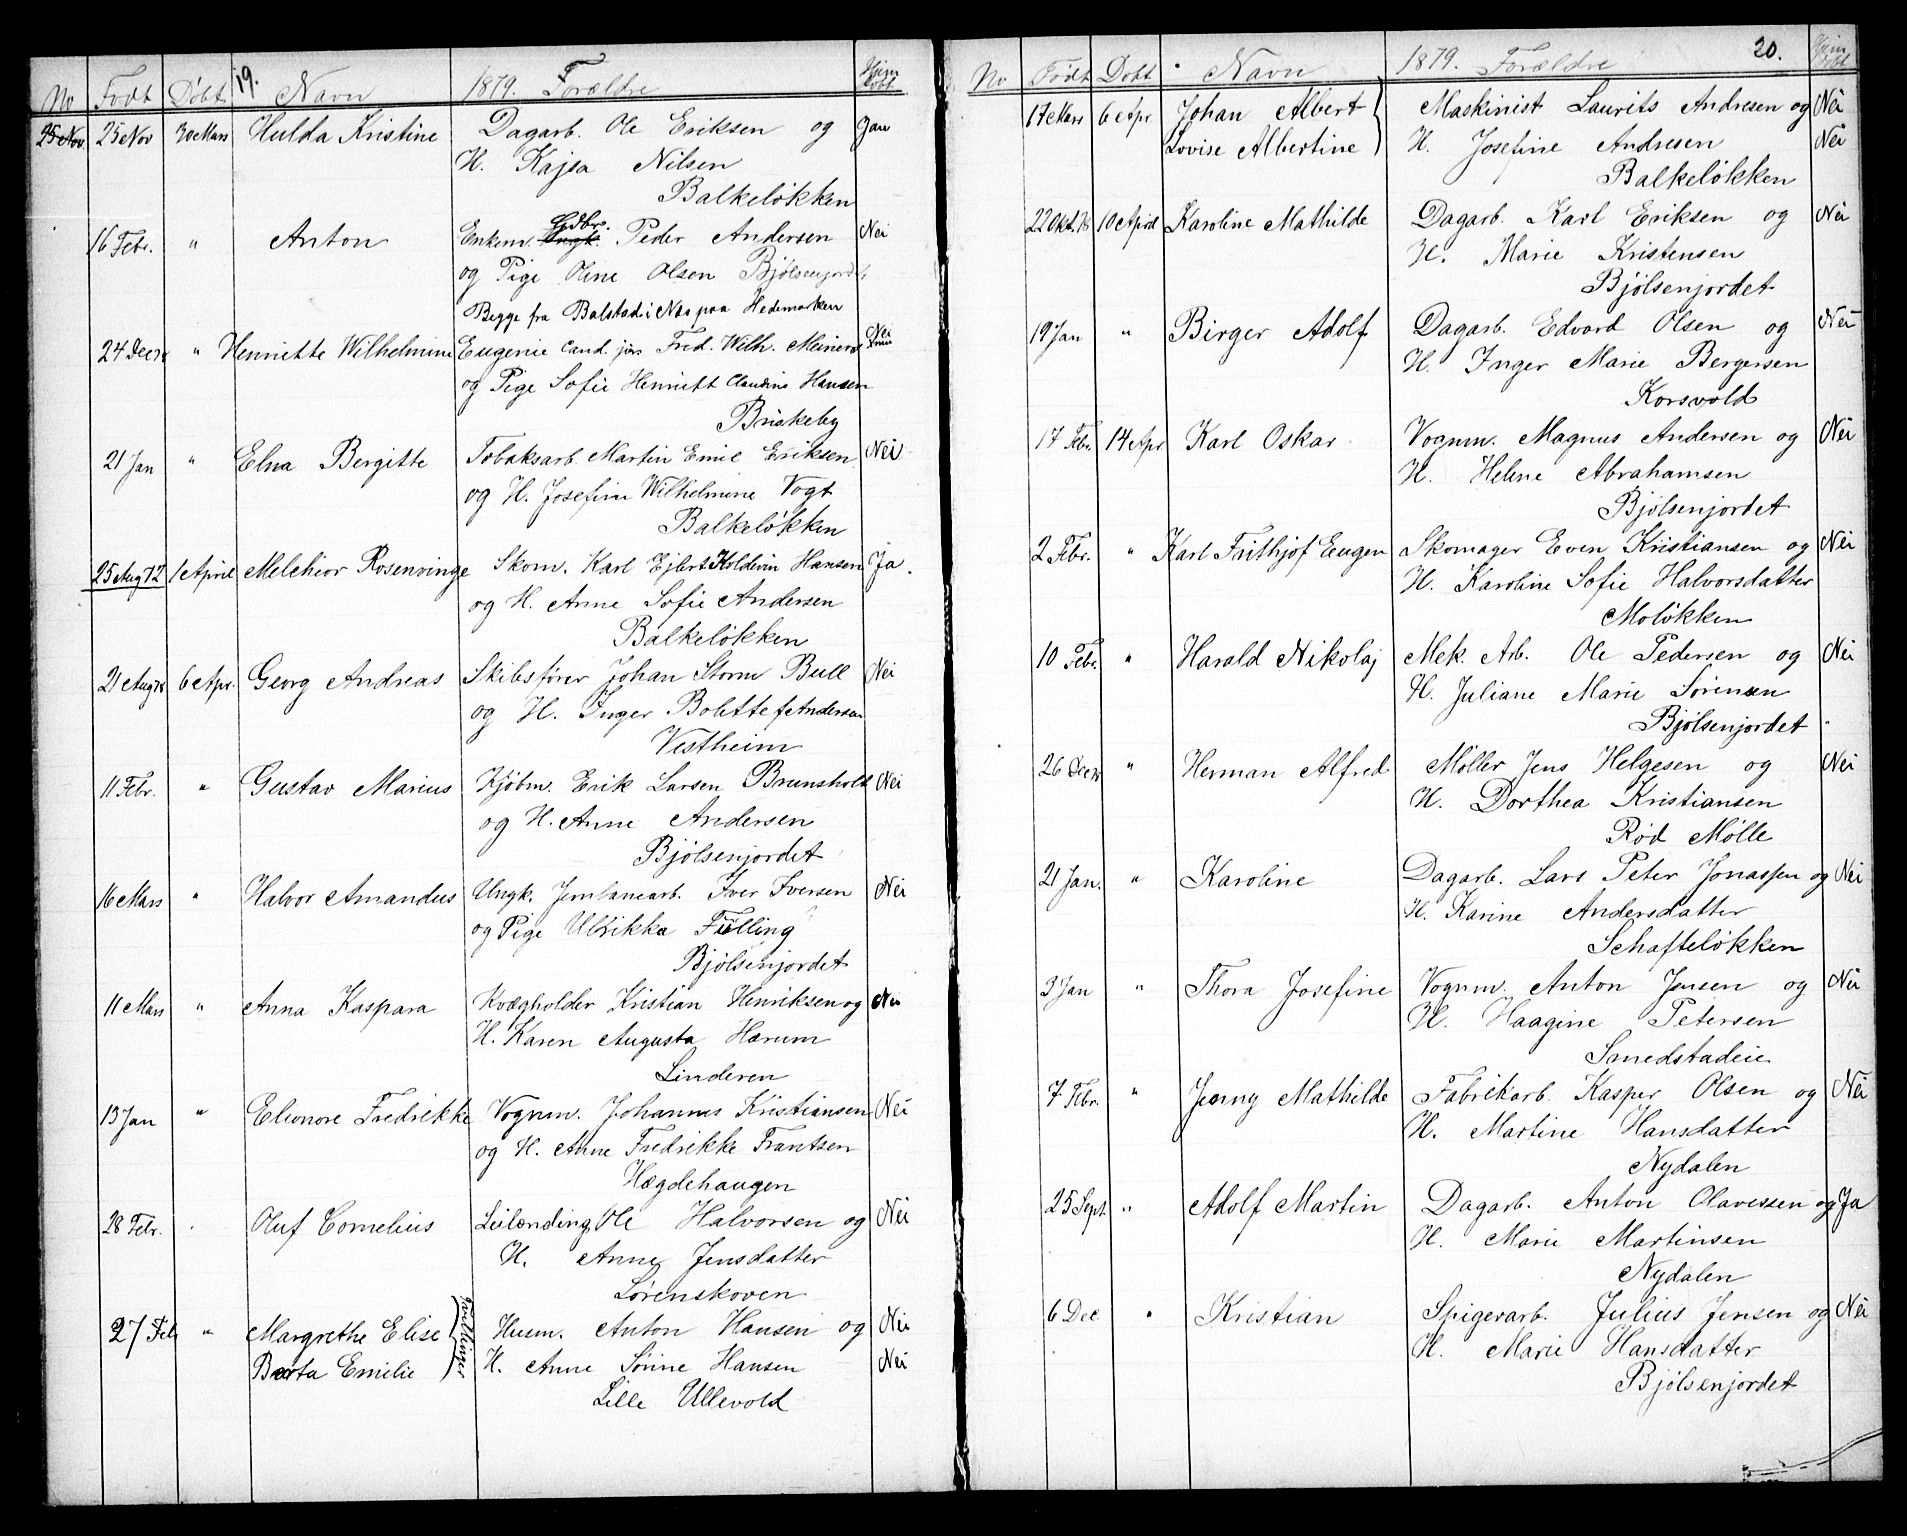 19.
No Født Døbt Navn 1879. Forældre Hjem døbt
25 Nov 25 Nov 30 Mars Hulda Kristine Dagarb. Ole Eriksen og Jan
H. Kajsa Nilsen
Balkeløkken
16 Febr. " Anton Enkem. Ungk. Gdbr. Peder Andersen Nei
og Pige Oline Olsen Bjølsenjordet
Begge fra Balstad i Næs paa Hedemarken
24 Dec 78 " Henriette Wilhelmine Eugenie Cand. jur Fred. Wilh. Meiners Nei
og Pige Sofie Henriett Claudine Hansen
Briskeby
21 Jan " Elna Bergitte Tobaksarb. Martin Emil Eriksen Nei
og H. Josefine Wilhelmine Vogt
Balkeløkken
25 Aug 72 1 April Melchior Rosenvinge Skom. Karl Ejlert Koldevin Hansen Ja.
og H. Anne Sofie Andersen
Balkeløkken
21 Aug 78 6 Apr. Georg Andreas Skibsfører Johan Storm Bull Nei
og H. Inger Bolette f Andersen
Vestheim
11 Febr. " Gustav Marius Kjøbm. Erik Larsen Brunsholt Nei
og H. Anne Andersen
Bjølsenjordet
16 Mars " Halvor Amandus Ungk. Jernbanearb. Iver Iversen Nei
og Pige Ulrikka Fülling
Bjølsenjordet
11 Mars " Anna Kaspara Kvægholder Kristian Henriksen og Nei
H. Karen Augusta Hærum
Linderen
13 Jan " Elionore Fredrikke Vognm. Johannes Kristiansen Nei
og H. Anne Fredrikke Frantsen
Hægdehaugen
28 Febr. Oluf Cornelius Leilænding Ole Halvorsen og Nei
H. Anne Jensdatter
Lørenskoven
27 Feb " Margrethe Elise } Tvillinger Husm. Anton Hansen og Nei
Berta Emilie H. Anne Sørine Hansen Nei
Lille Ullevold
20.
No Født Døbt Navn 1879. Forældre Hjem døbt
17 Mars 6 Apr Johan Albert } Maskinist Laurits Andresen og Nei
Lovise Albertine H. Josefine Andresen Nei
Balkeløkken
22 Okt. 78 10 April Karoline Mathilde Dagarb. Karl Eriksen og Nei
H. Marie Kristensen
Bjølsenjordet
19 Jan " Birger Adolf Dagarb. Edvard Olsen og Nei
H. Inger Marie Bergersen
Korsvold
17 Febr. 14 Apr Karl Oskar Vognm. Magnus Andersen og Nei
H. Helene Abrahamsen
Bjølsenjordet
2 Febr. " Karl Frithjof Eugen Skomager Even Kristiansen og Nei
H. Karoline Sofie Halvorsdatter
Moløkken
10 Febr. " Harald Nikolaj Mek. Arb. Ole Pedersen og Nei
H. Juliane Marie Sørensen
Bjølsenjordet
26 Dec 78 " Herman Alfred Møller Jens Helgesen og Nei
H. Dorthea Kristiansen
Rød Mølle
21 Jan. " Karoline Dagarb. Lars Peter Jonassen og Nei
H. Karine Andersdatter
Schafteløkken
3 Jan " Thora Josefine Vognm. Anton Jensen og Nei
H. Haagine Petersen
Smedstadeie
7 Febr. " Jenny Mathilde Fabrikarb. Kasper Olsen og Nei
H. Martine Hansdatter
Nydalen
25 Sept. " Adolf Martin Dagarb. Anton Olavessen og Ja
H. Marie Martinsen
Nydalen
6 Dec " Kristian Spigerarb. Julius Jensen og Nei
H. Marie Hansdatter
Bjølsenjordet